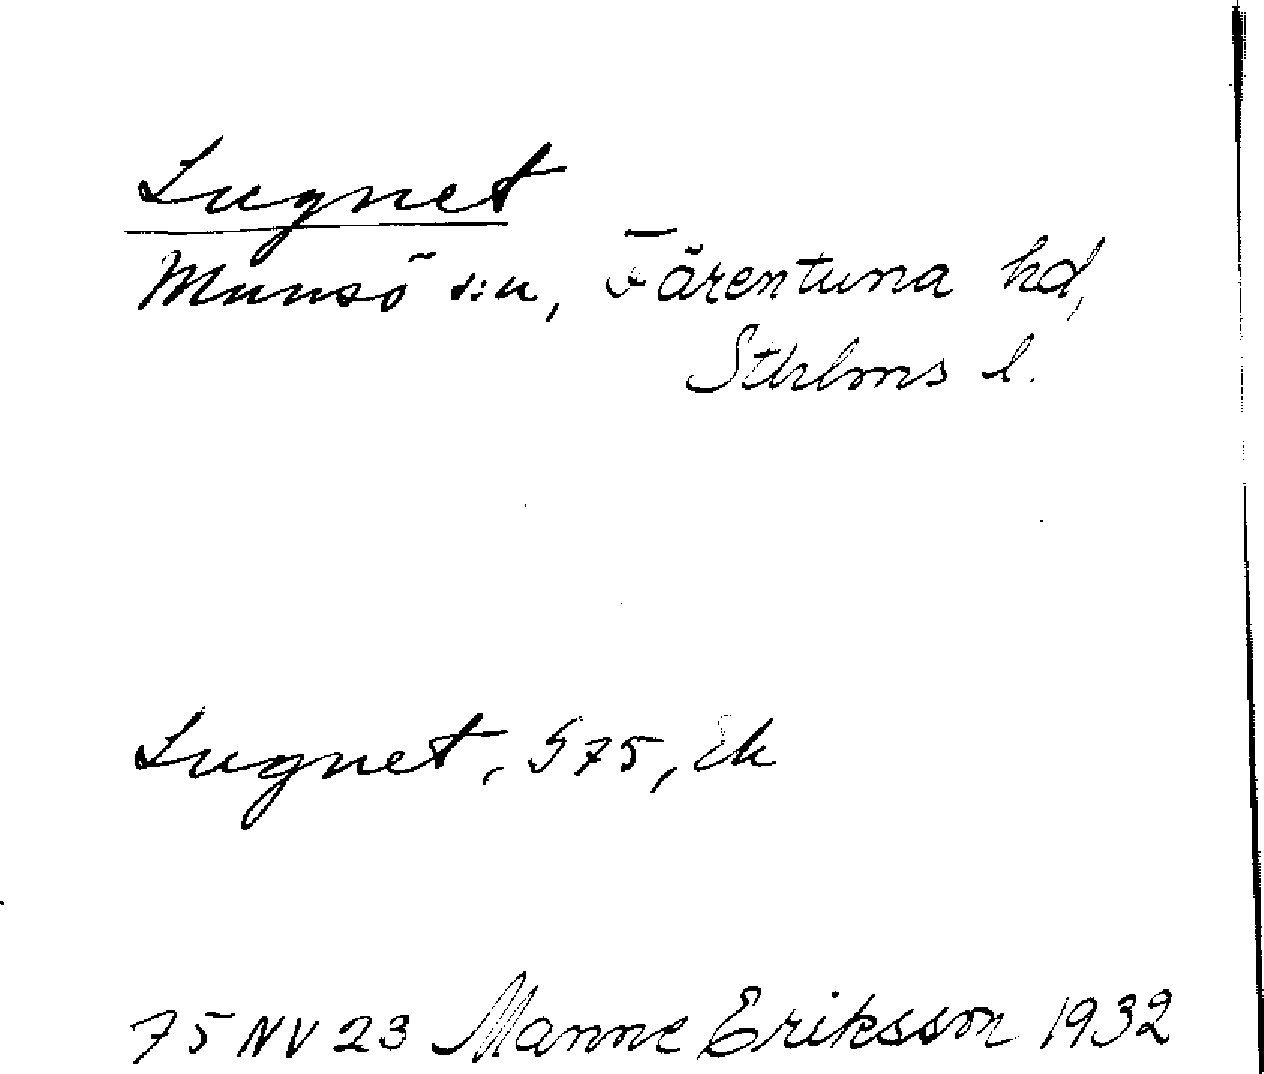 Lugnet
Munsö s:n, Färentuna hd,
Sthlms l.
Lugnet, S75, Ek
75 NV 23 Manne Eriksson 1932